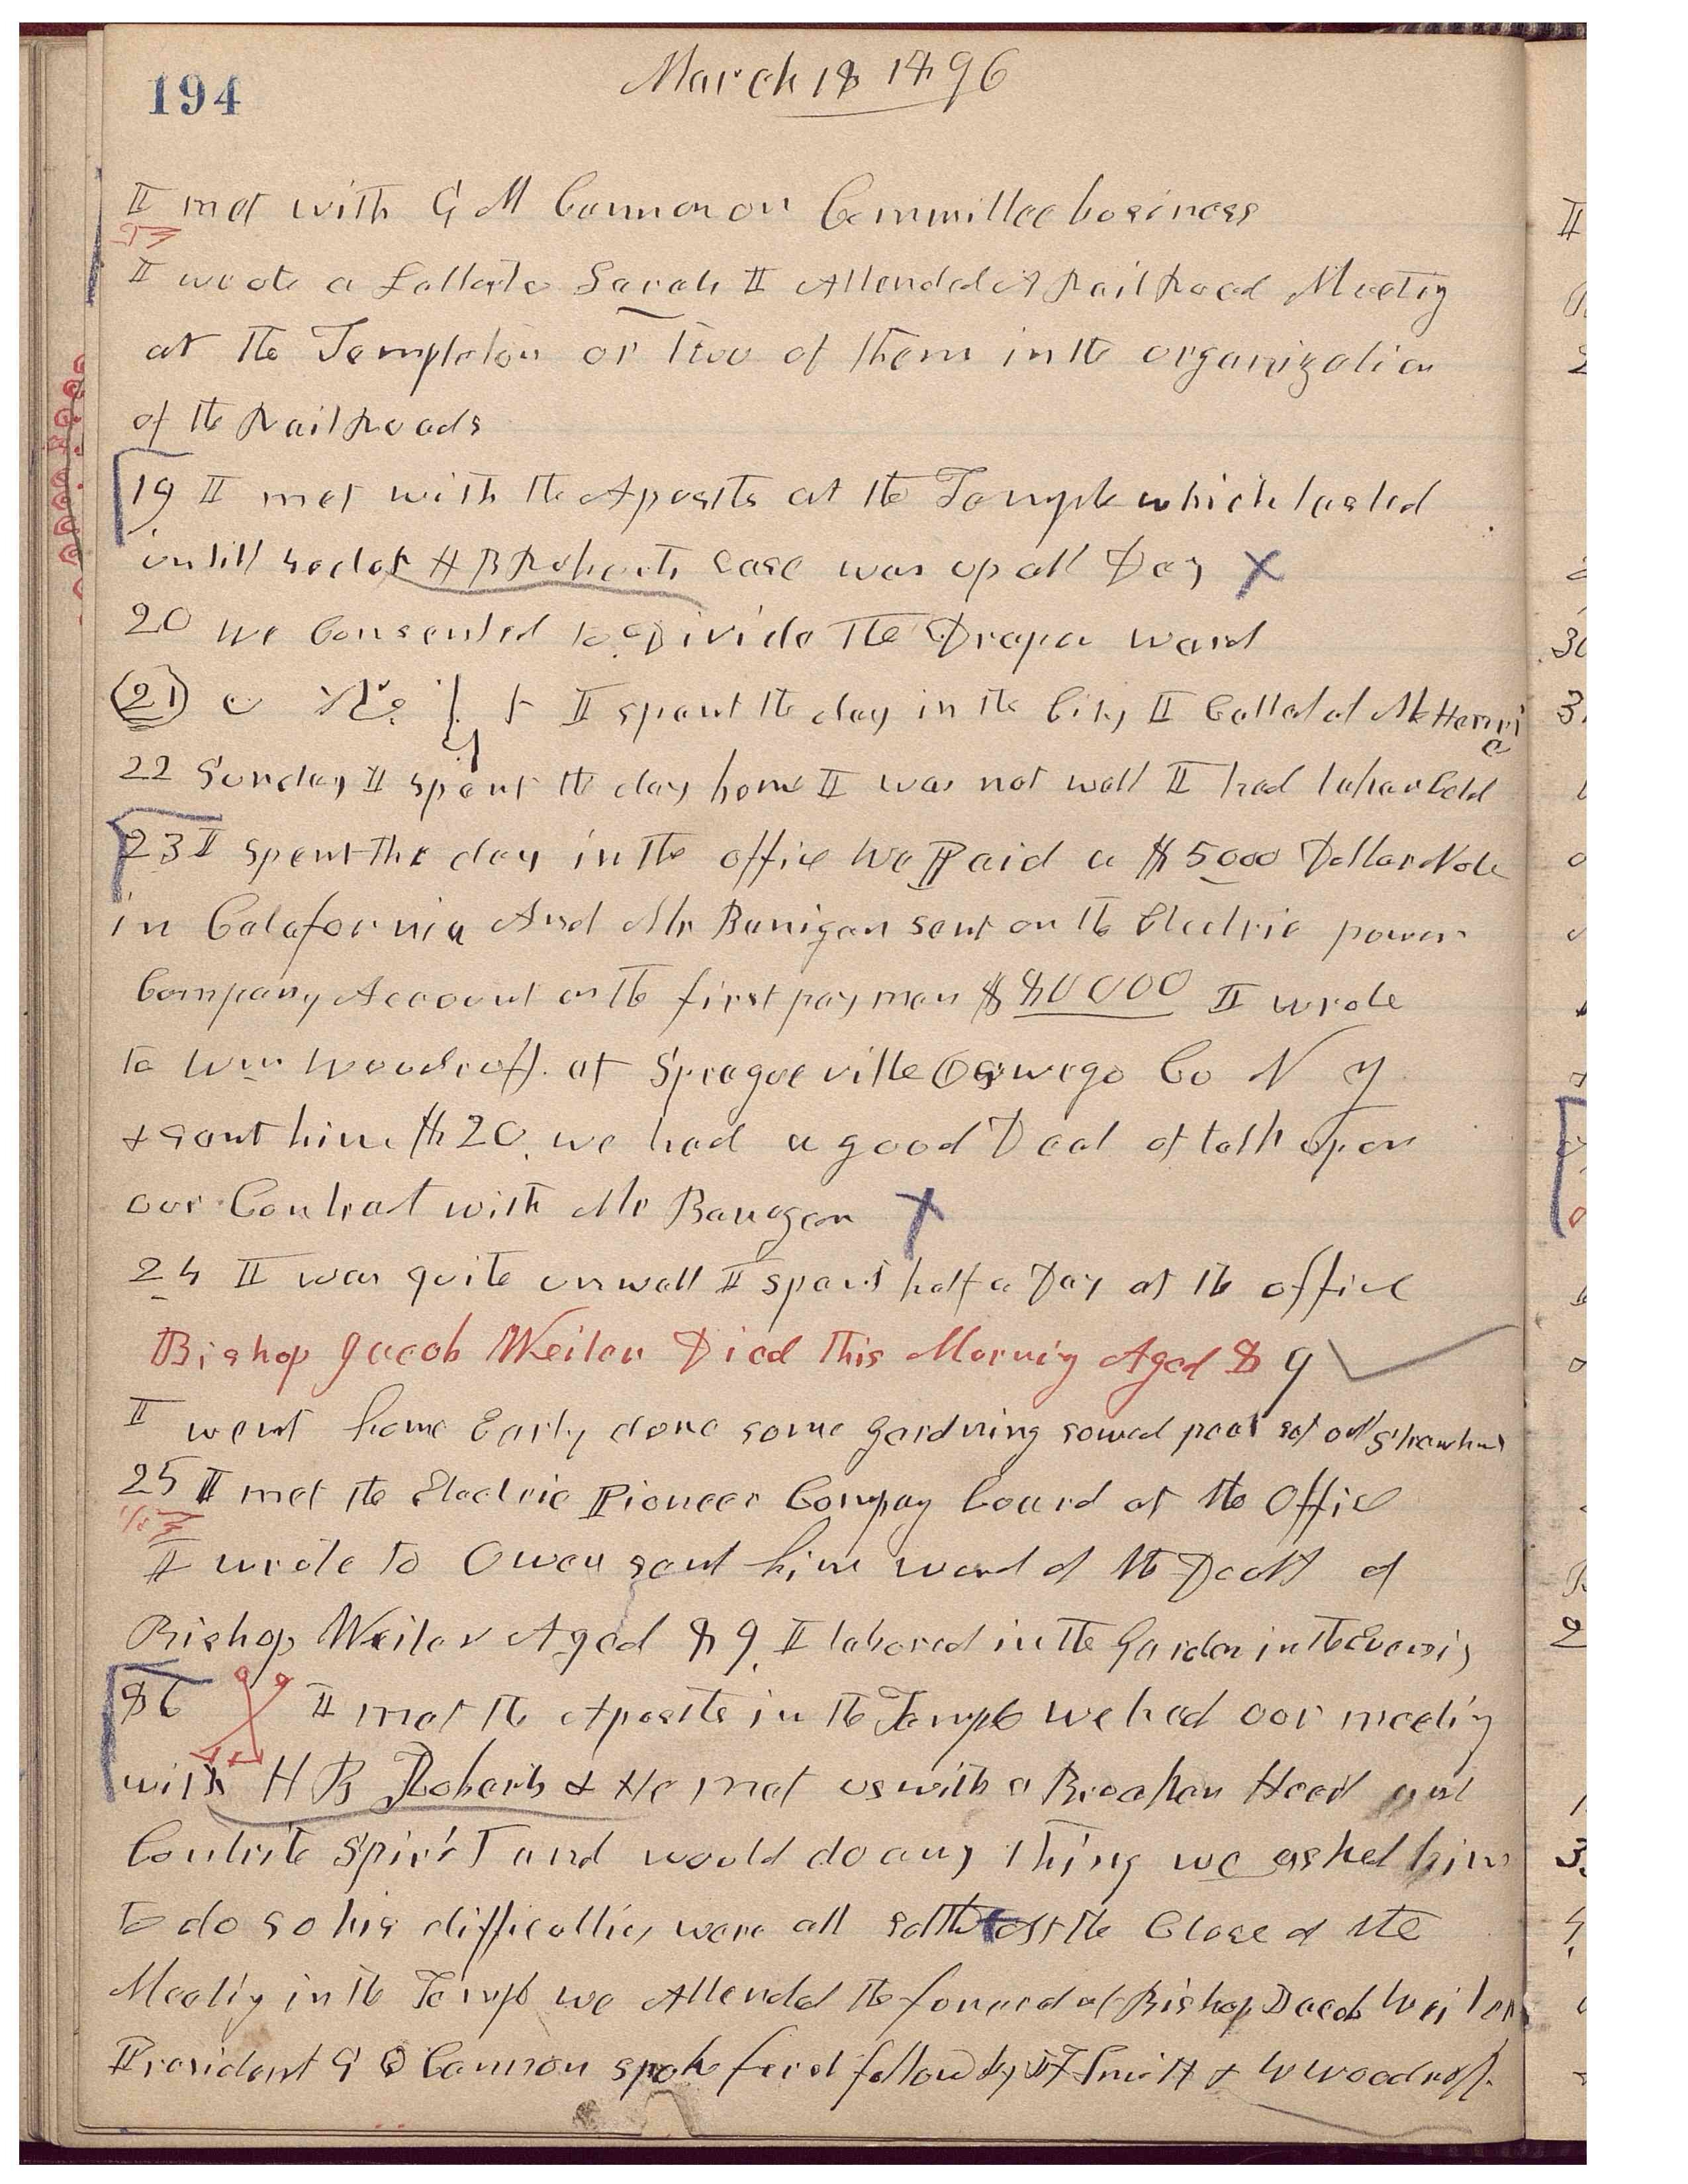 194
March 18 1896
I met with G M Cannon on Committee business
I wrote a Letter to Sarah I Attended A Rail Road Meeting
at the Templeton or two of them in the organization
of the Rail Roads
19 I met with the Apostls at the Temple which lasted
untill H B Roberts Case was up all Day X
20 we Consented to Divide the Draper ward
(21) I spent the day in the City I Called at
22 Sunday I spent the day home I was not well I had taken Cold
23 I spent the day in the office We Paid a $5000 Dollar Note
in Calafornia And Mr Banigan sent on the Electric power
Company Account on the first paymen $80000 I wrote
to Wm Woodruff at Spragueville Oswego Co N Y
& sent him $20. we had a good Deal of talk upon
our Contrat with Mr Banagan X
24 I was quite unwell I spent half a Day at the office
Bishop Jacob Weiler Died this Morning Aged 89
I went home Early done some gardning sowed peas set out
25 I met the Electric Pioneer Compay board at the Office
I wrote to Owen sent him word of the Death of
Bishop Weiler Aged 89. I labored in the Garden in the Evenig
86 I met the Apostls in the Templ we had our meetig
with H B Roberts & He met us with a Broaken Heart and
Contrite Spirit and would do any thing we asked him
to do so his difficulties were all at the Close of the
Meetig in the Templ we Attended the funeral of Bishop Jacob Weiler
President G Q Cannon spoke first followd by J F Smith & W Woodruff.